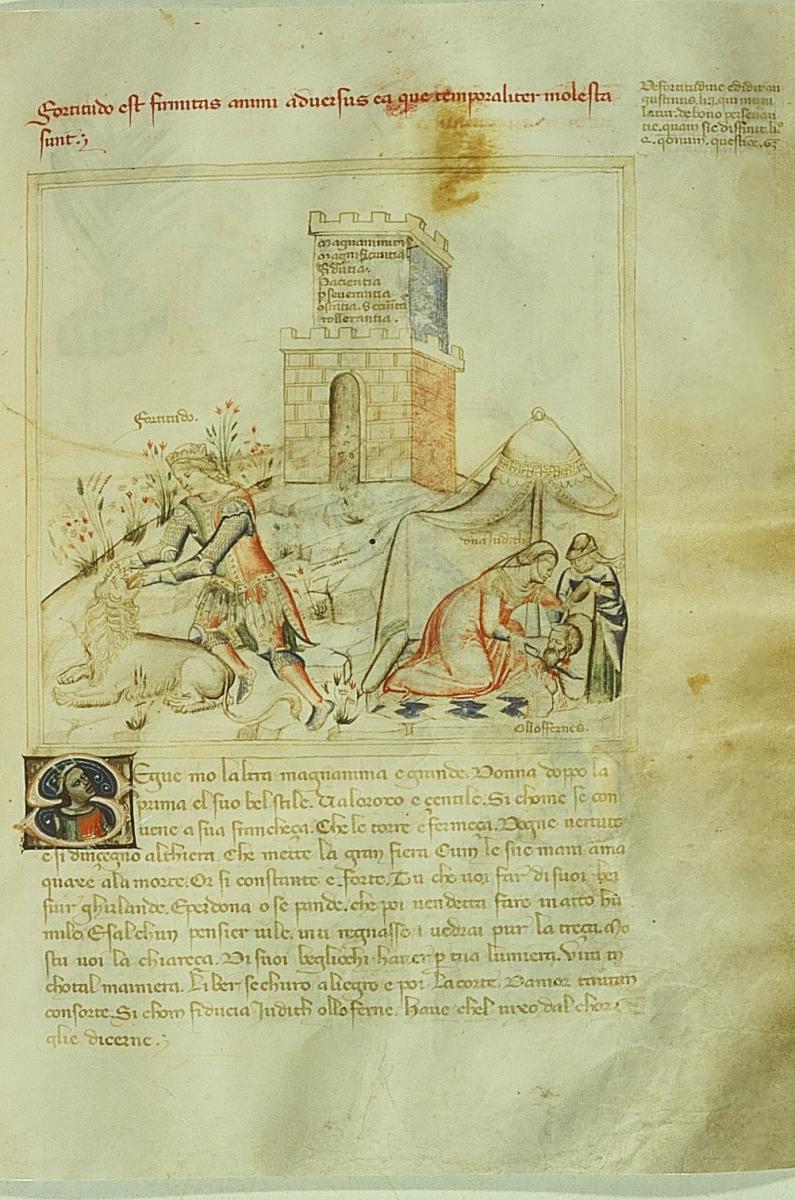 Fortitudo est firmitas animi adversus ea que temporaliter molesta
sunt.
De fortitudine edidit au
gustinus. li. j. qui intitu
latur. de bono perseuan
tie. quam sic diffinit. li.
questioe. 63
Magnanimitas
Magnificentia
Fidutia.
Pacientia
pseverantia
tollerantia.
Fortitudo.
dna Judith
Ollofernes.
Segue mo laltra magnanima e grande. Donna doppo la
prima el suo bel stile. Valoroxo e gentile. Si chome se con
uene a sua francheça. Che le torre e fermeça. Dogne uertute
e si dinçegno althiera. Che mette la gran fiera Cum le sue mani ama
quaxe ala morte. Or si constante e forte. Tu che uoi far di suoi bei
fiur ghirlande. E perdona o se pande. che poi uendetta fare in atto hu
mile. E salchun pensier uile. in ti regnasse i uedrai pur la treça. Mo
stu uoi la chiareça. Di suoi begliochi hauer p tua lumiera. Viui in
chotal maniera. Liber sechuro aliegro e poi la corte. Damor
consorte. Si chom fiducia Judith olloferne. Haue chel uixo dal chor
glie dicerne.